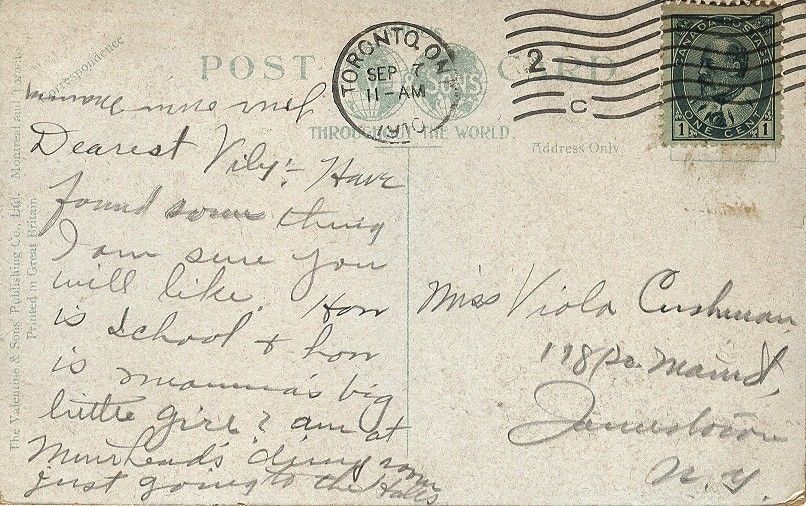 POST CARD
THROUGHOUT THE WORLD
SONS
Correspondence
Address Only
The Valentine & Sons' Publishing Co., Ltd. Montreal and Toronto
Printed in Great Britain.
TORONTO, ONT.
SEP 7
11-AM
1910
2
C
CANADA POSTAGE
1 ONE CENT 1
Your own Mamma
Dearest Vily:- Have
found some thing
I am sure you
will like. How
is school & how
is mamma's big
little girl? am at
Muirhead's dining room
just going to the Halls
Miss Viola Cushman
118 So. Main St,
Jamestown
N.Y.